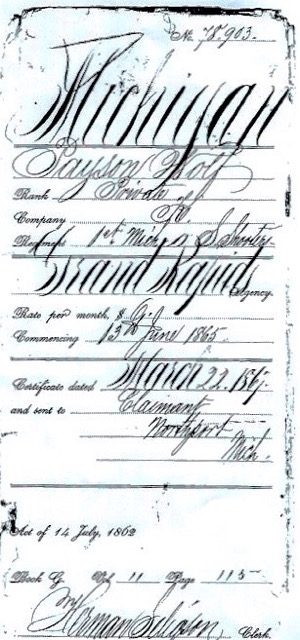 No. 78,903.
Michigan
Payson Wolf
Rank Private
Company
Regiment 1st Mich S. Shooters
Grand Rapids Agency.
Rate per month, $
Commencing 13th June 1865.
Certificate dated March 22, 186
and sent to Claimant
Northport
Mich.
Act of 14 July, 1862
Book G Vol 11 Page 115
Herman Clerk.